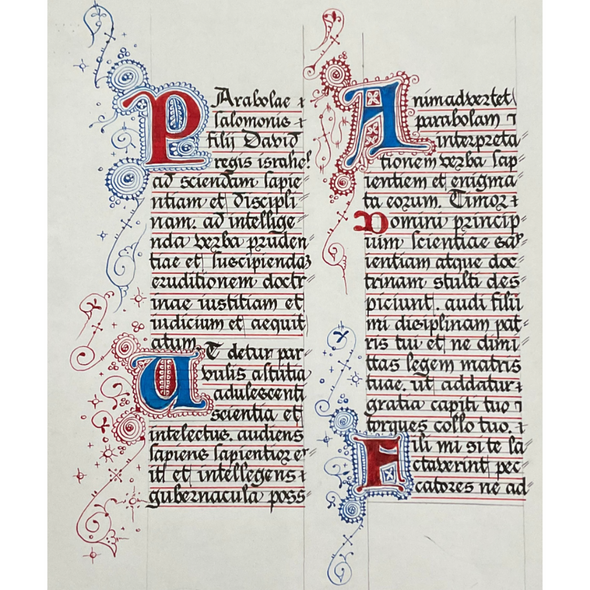 Parabolae &
salomonis &
filij David
regis israhel
ad sciendam sapie
ntiam et discipli
nam. ad intellige
nda verba pruden
tiae et suscipienda
eruditionem doctr
inae iustitiam et
iudicium et aequit
atum
UT detur par
vulis astutia
adulescenti
scientia et
intelectus. audiens
sapiens sapientior er
it et intellegens
gubernacula poss
Animadvertet
parabolam ⁊
interpreta
tionem verba sap
ientiem et enigma
ta eorum. Timor
Domini princip
uim scientiae sap
ientiam atque doc
trinam stulti des
piciunt. audi filii
mi disciplinam pat
ris tui et ne dimi
ttas legem matris
tuae. ut addatur
gratia capiti tuo ⁊
torques collo tuo.
Fili mi si te la
ctaverint pec
catores ne ad